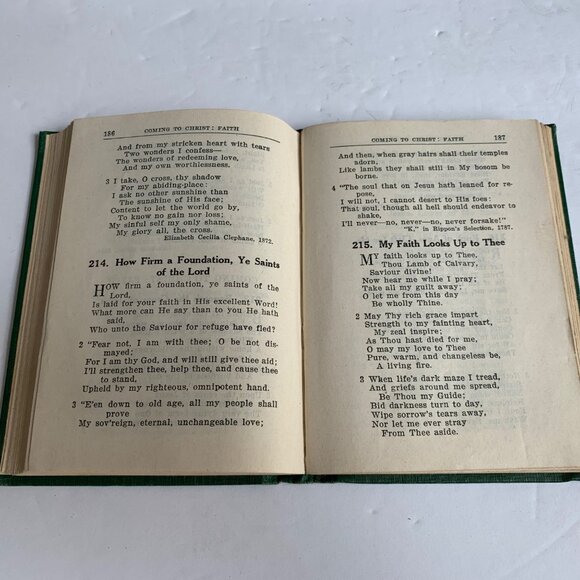 186 COMING TO CHRIST: FAITH
And from my stricken heart with tears
Two wonders I confess—
The wonders of redeeming love,
And my own worthlessness.
3 I take, O cross, thy shadow
For my abiding-place:
I ask no other sunshine than
The sunshine of His face;
Content to let the world go by,
To know no gain nor loss;
My sinful self my only shame,
My glory all, the cross.
Elizabeth Cecilia Clephane, 1872.
214. How Firm a Foundation, Ye Saints
of the Lord
HOW firm a foundation, ye saints of the
Lord,
Is laid for your faith in His excellent Word!
What more can He say than to you He hath
said,
Who unto the Saviour for refuge have fled?
2 "Fear not, I am with thee; O be not dis-
mayed;
For I am thy God, and will still give thee aid;
I'll strengthen thee, help thee, and cause thee
to stand,
Upheld by my righteous, omnipotent hand.
3 "E'en down to old age, all my people shall
prove
My sov'reign, eternal, unchangeable love;
COMING TO CHRIST: FAITH 187
And then, when gray hairs shall their temples
adorn,
Like lambs they shall still in My bosom be
borne.
4 "The soul that on Jesus hath leaned for re-
pose,
I will not, I cannot desert to His foes:
That soul, though all hell should endeavor to
shake,
I'll never—no, never—no, never forsake!"
"K," in Rippon's Selection, 1787.
215. My Faith Looks Up to Thee
MY faith looks up to Thee,
Thou Lamb of Calvary,
Saviour divine!
Now hear me while I pray;
Take all my guilt away;
O let me from this day
Be wholly Thine.
2 May Thy rich grace impart
Strength to my fainting heart,
My zeal inspire;
As Thou hast died for me,
O may my love to Thee
Pure, warm, and changeless be,
A living fire.
3 When life's dark maze I tread,
And griefs around me spread,
Be Thou my Guide;
Bid darkness turn to day,
Wipe sorrow's tears away,
Nor let me ever stray
From Thee aside.